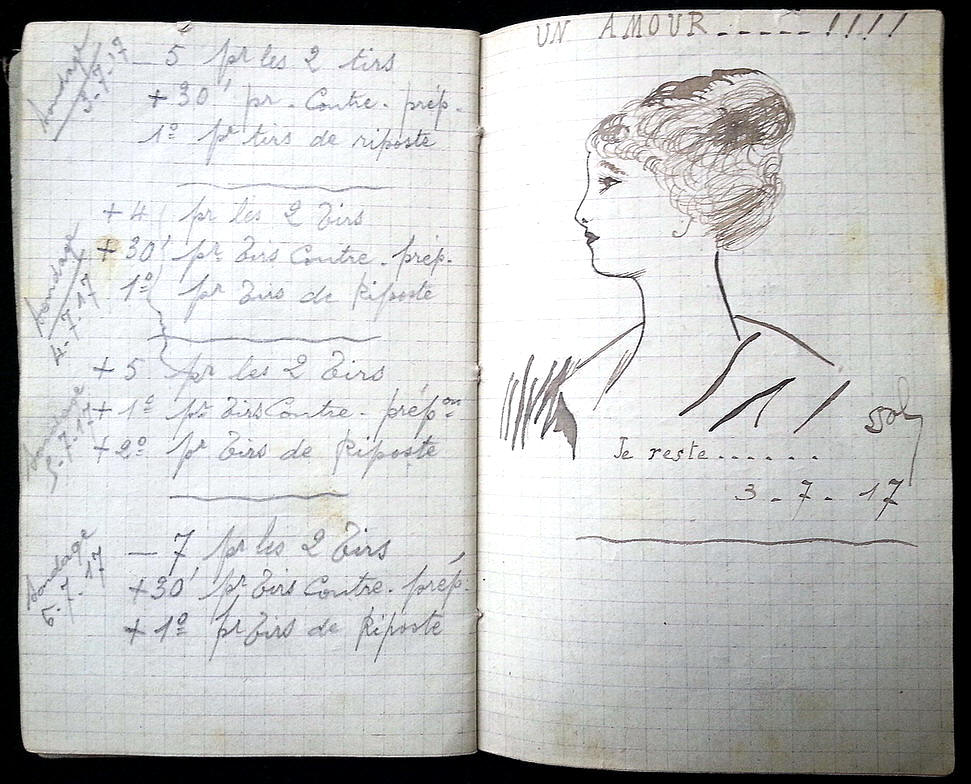 Sondage
3-7-17
- 5 pr les 2 tirs
+ 30' pr. Contre. prép.
1º pr tirs de riposte
Sondage
4-7.17
+ 4 pr les 2 Tirs
+ 30' pr Tirs Contre. prép.
1º pr Tirs de Riposte
Sondage
5-7.17
+ 5 pr les 2 Tirs
+ 1º pr Tirs Contre. prépon
+ 2º pr Tirs de Riposte
Sondage
6.7.17
- 7 pr les 2 Tirs
+ 30' pr Tirs Contre. prép.
+ 1º pr Tirs de Riposte
UN AMOUR_____!!!!
Je reste......
3 - 7 - 17